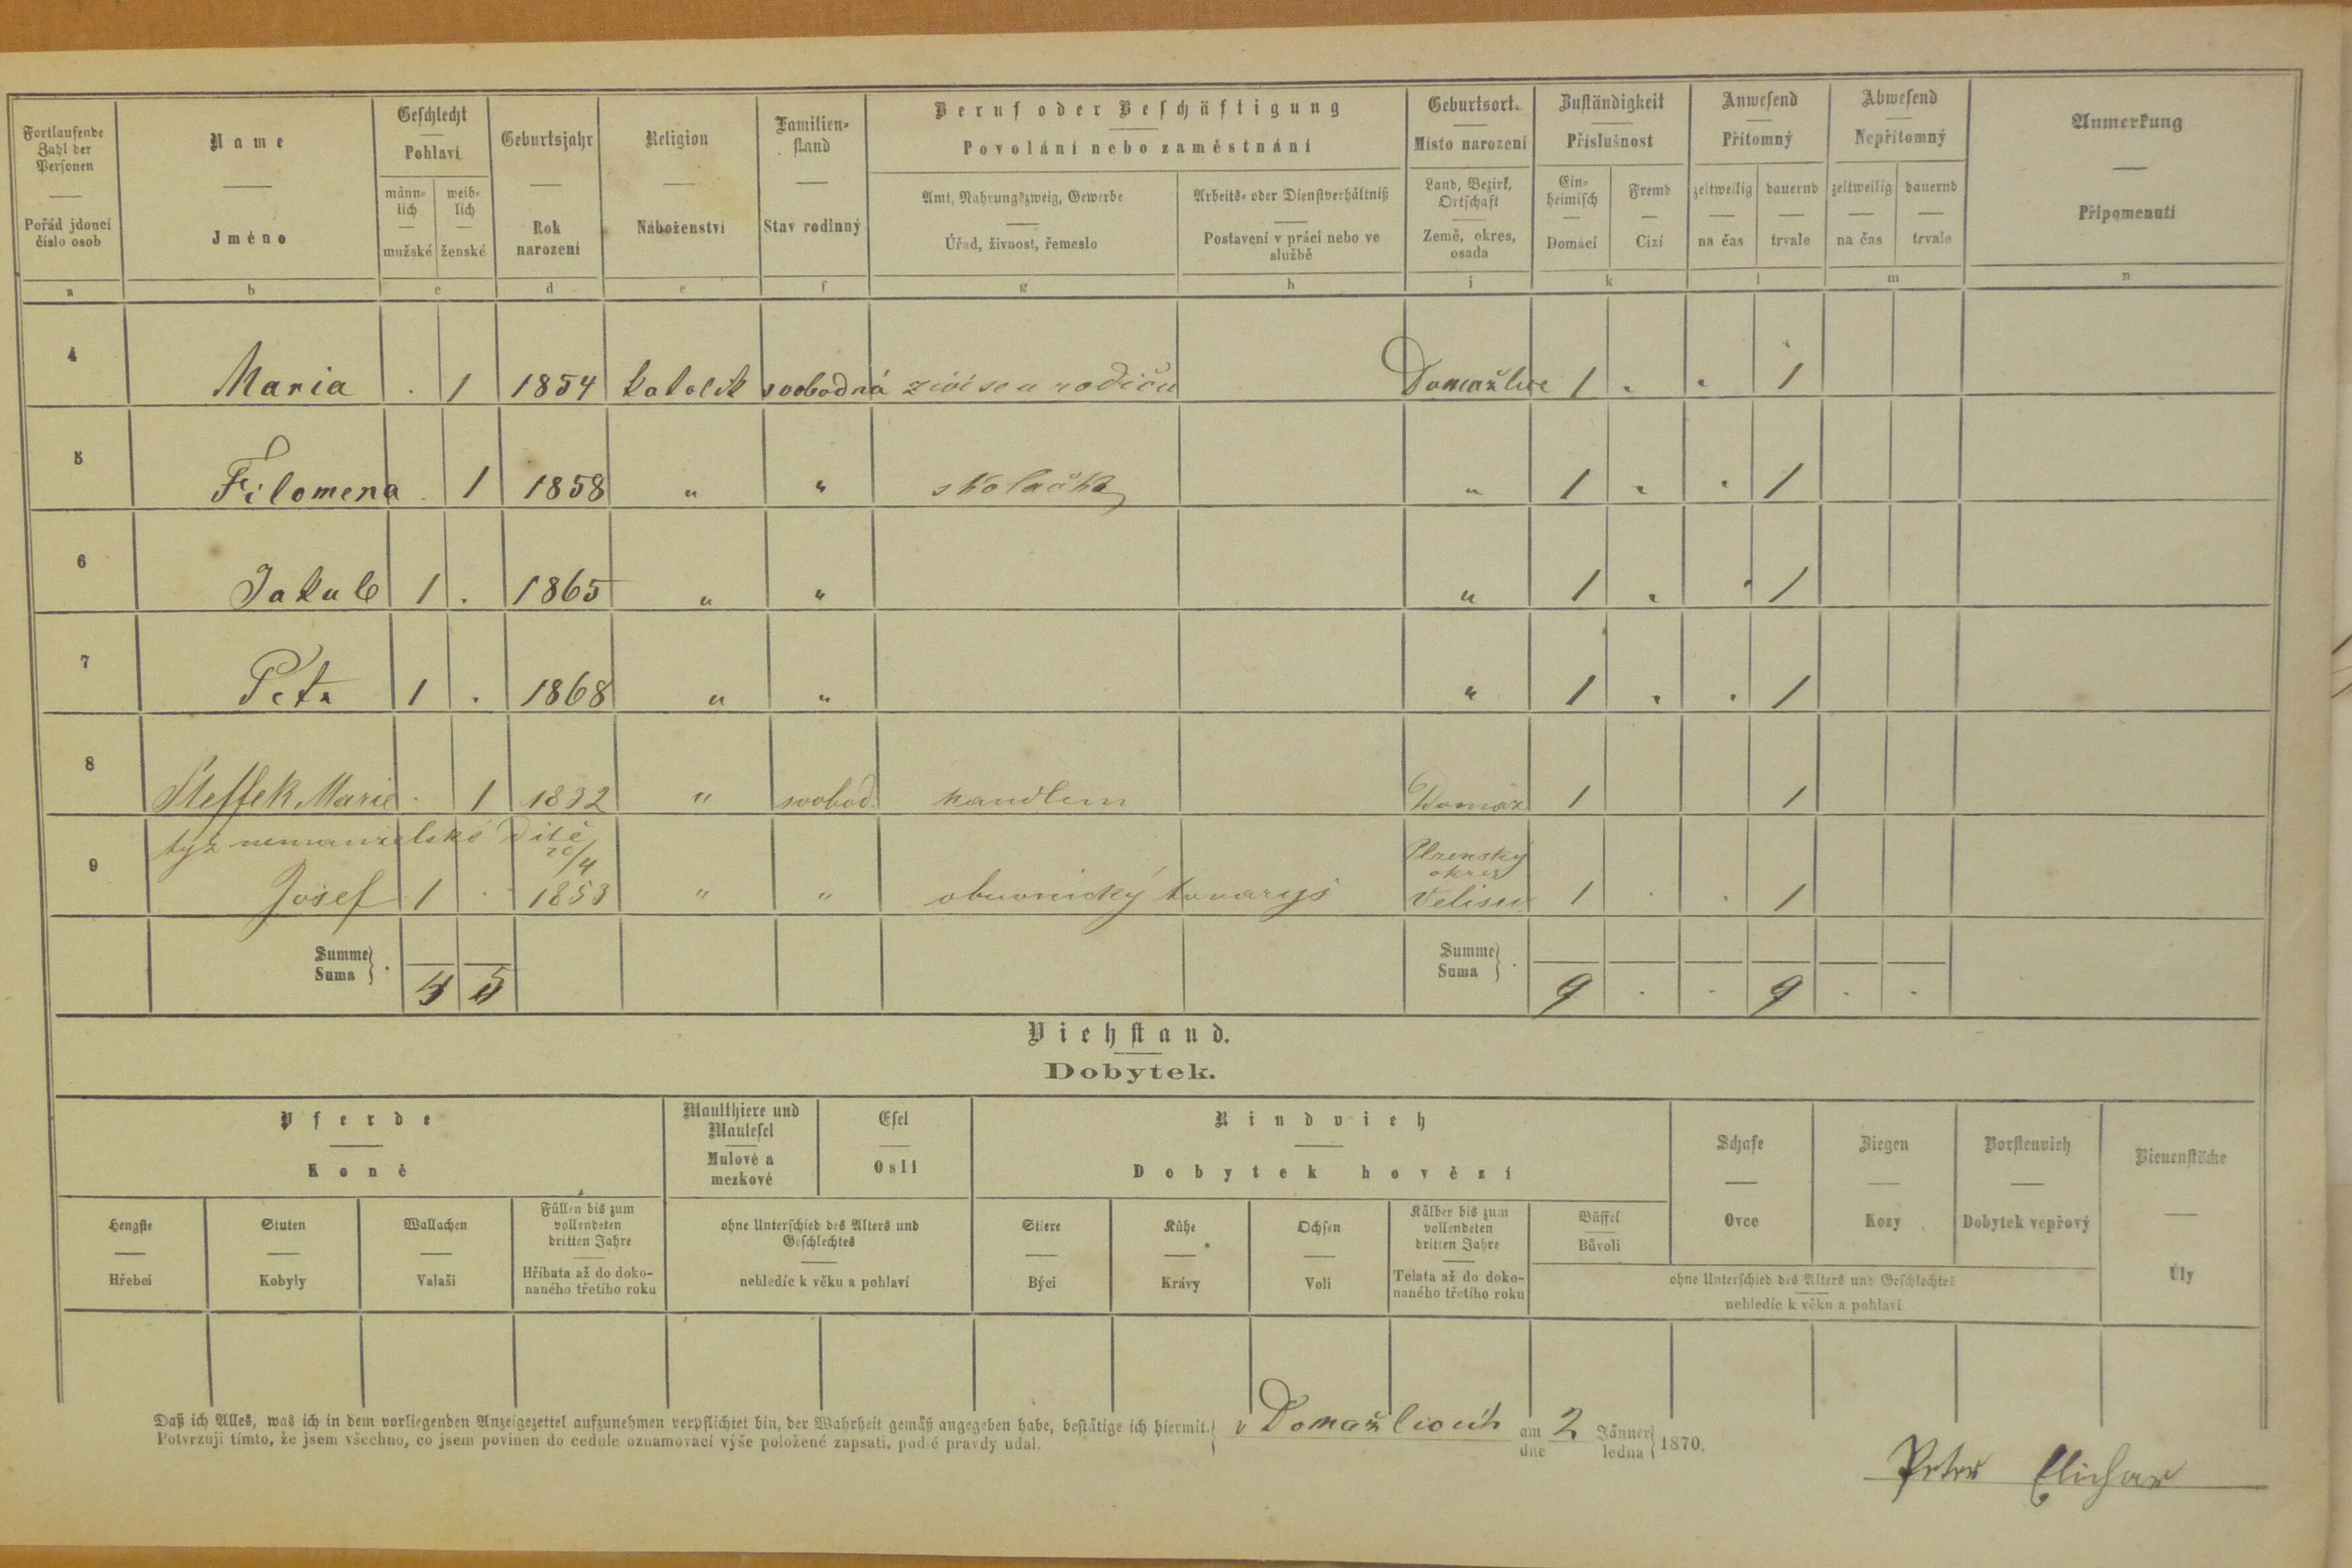 Fortlaufende Zahl der Personen
Pořád jdoucí číslo osob
Name
Jméno
Geschlecht
Pohlaví
männlich
mužské
weiblich
ženské
Geburtsjahr
Rok narození
Religion
Náboženství
Familienstand
Stav rodinný
Beruf oder Beschäftigung
Povolání nebo zaměstnání
Amt, Nahrungszweig, Gewerbe
Úřad, živnost, řemeslo
Arbeits- oder Dienstverhältniß
Postavení v práci nebo ve službě
Geburtsort.
Místo narození
Land, Bezirk, Ortschaft
Země, okres, osada
Zuständigkeit
Příslušnost
Einheimisch
Domácí
Fremd
Cizí
Anwesend
Přítomný
zeitweilig
na čas
dauernd
trvale
Abwesend
Nepřítomný
zeitweilig
na čas
dauernd
trvale
Anmerkung
Připomenutí
a b c d e f g h i k l m n
4 Maria . 1 1854 katolík svobodná živí se u rodičů Domažlice 1 „ „ 1
5 Filomena . 1 1858 „ „ školačka „ 1 „ „ 1
6 Jakub 1 . 1865 „ „ „ 1 „ „ 1
7 Petr 1 . 1868 „ „ „ 1 „ „ 1
8 Steffek Marie . 1 1832 „ svobod. Domaž 1 1
9 týž nemanželské Dítě
20/4 Plzenský okres
Josef 1 . 1853 „ „ obuvnický tovaryš 1 . . 1
Summe
Suma
4 5
Summe
Suma
9 . . 9 . .
Viehstand.
Dobytek.
Pferde
Koně
Hengste
Hřebci
Stuten
Kobyly
Wallachen
Valaši
Füllen bis zum vollendeten dritten Jahre
Hříbata až do dokonaného třetího roku
Maulthiere und Maulesel
Mulové a mezkové
Esel
Osli
ohne Unterschied des Alters und Geschlechtes
nehledíc k věku a pohlaví
Rindvieh
Dobytek hovězí
Stiere
Býci
Kühe
Krávy
Ochsen
Voli
Kälber bis zum vollendeten dritten Jahre
Telata až do dokonaného třetího roku
Büffel
Bůvoli
Schafe
Ovce
Ziegen
Kozy
Borstenvieh
Dobytek vepřový
ohne Unterschied des Alters und Geschlechtes
nehledíc k věku a pohlaví
Bienenstöcke
Úly
Daß ich Alles, was ich in dem vorliegenden Anzeigezettel aufzunehmen verpflichtet bin, der Wahrheit gemäß angegeben habe, bestätige ich hiermit.
Potvrzuji tímto, že jsem všechno, co jsem povinen do cedule oznamovací výše položené zapsati, podlé pravdy udal.
v Domažlicích am dne 2 Jänner ledna 1870.
Peter